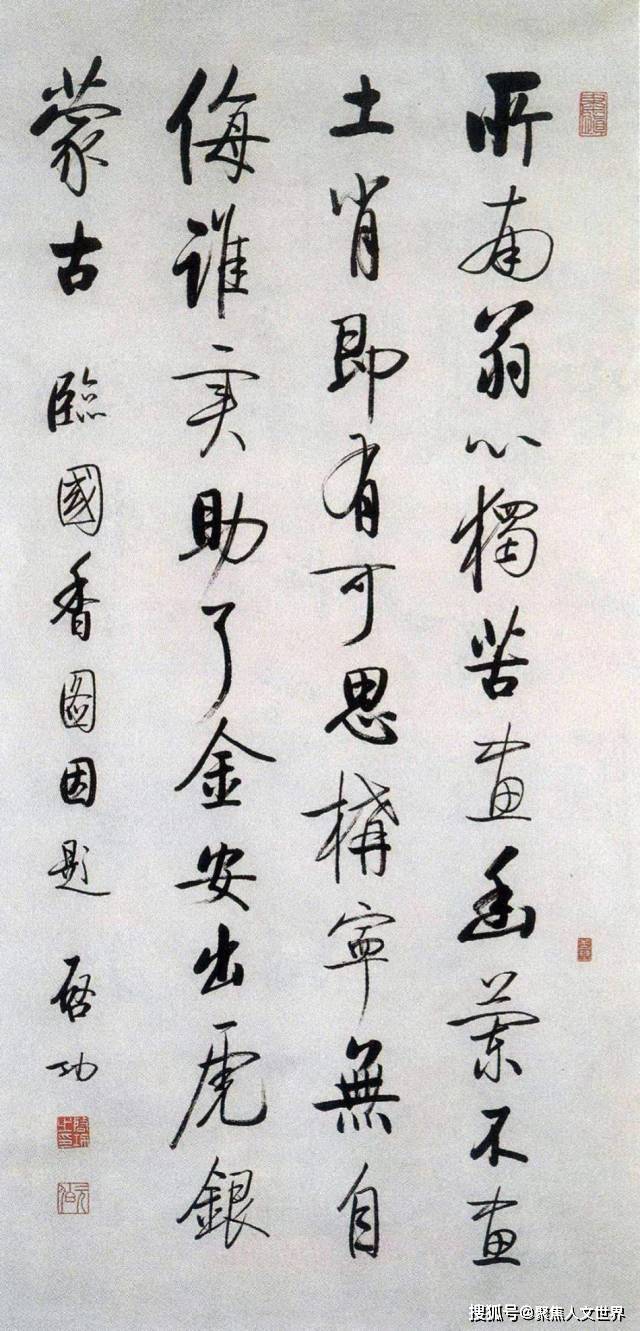 所南翁心獨苦画幽蘭不画
土肖即有可思構寧無自
侮誰实助了金安出虎銀
蒙古 臨國香圖因题 启功
搜狐号@聚焦人文世界